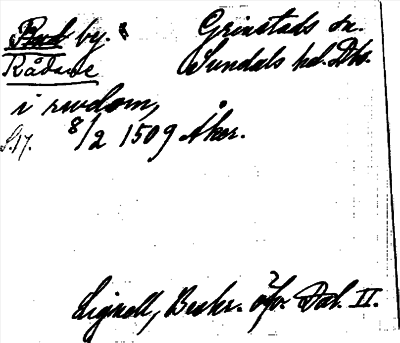 by. Grinstads sn.
Rådane Sundals hd. Dls.
i rudom,
S.17. 8/2 1509 Åker.
Lignell, Beskr. öfv. Dal. II.